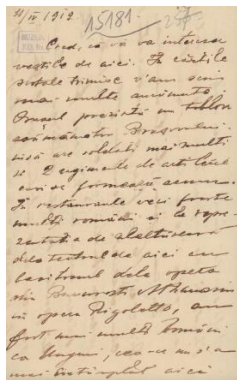 21/IV 1919
15181.
Cred, că vă va interesa
veștile de aici. În cărțile
poștale trimise v'am scris
mai multe amănunte.
Orașul prezintă un tablou
asămănător Brașovului.
însă are soldați mai mulți
și 2 regimente de artilerie
cari se formează acum.
În restaurante vezi foarte
mulți români și la repre-
zentația de
dela teatrul de aici cu
baritonul dela opera
din București Athanasiu
în opera Rigoletto, au
fost mai mulți români
ca Unguri, ceea-ce nu s'a
mai întâmplat aici